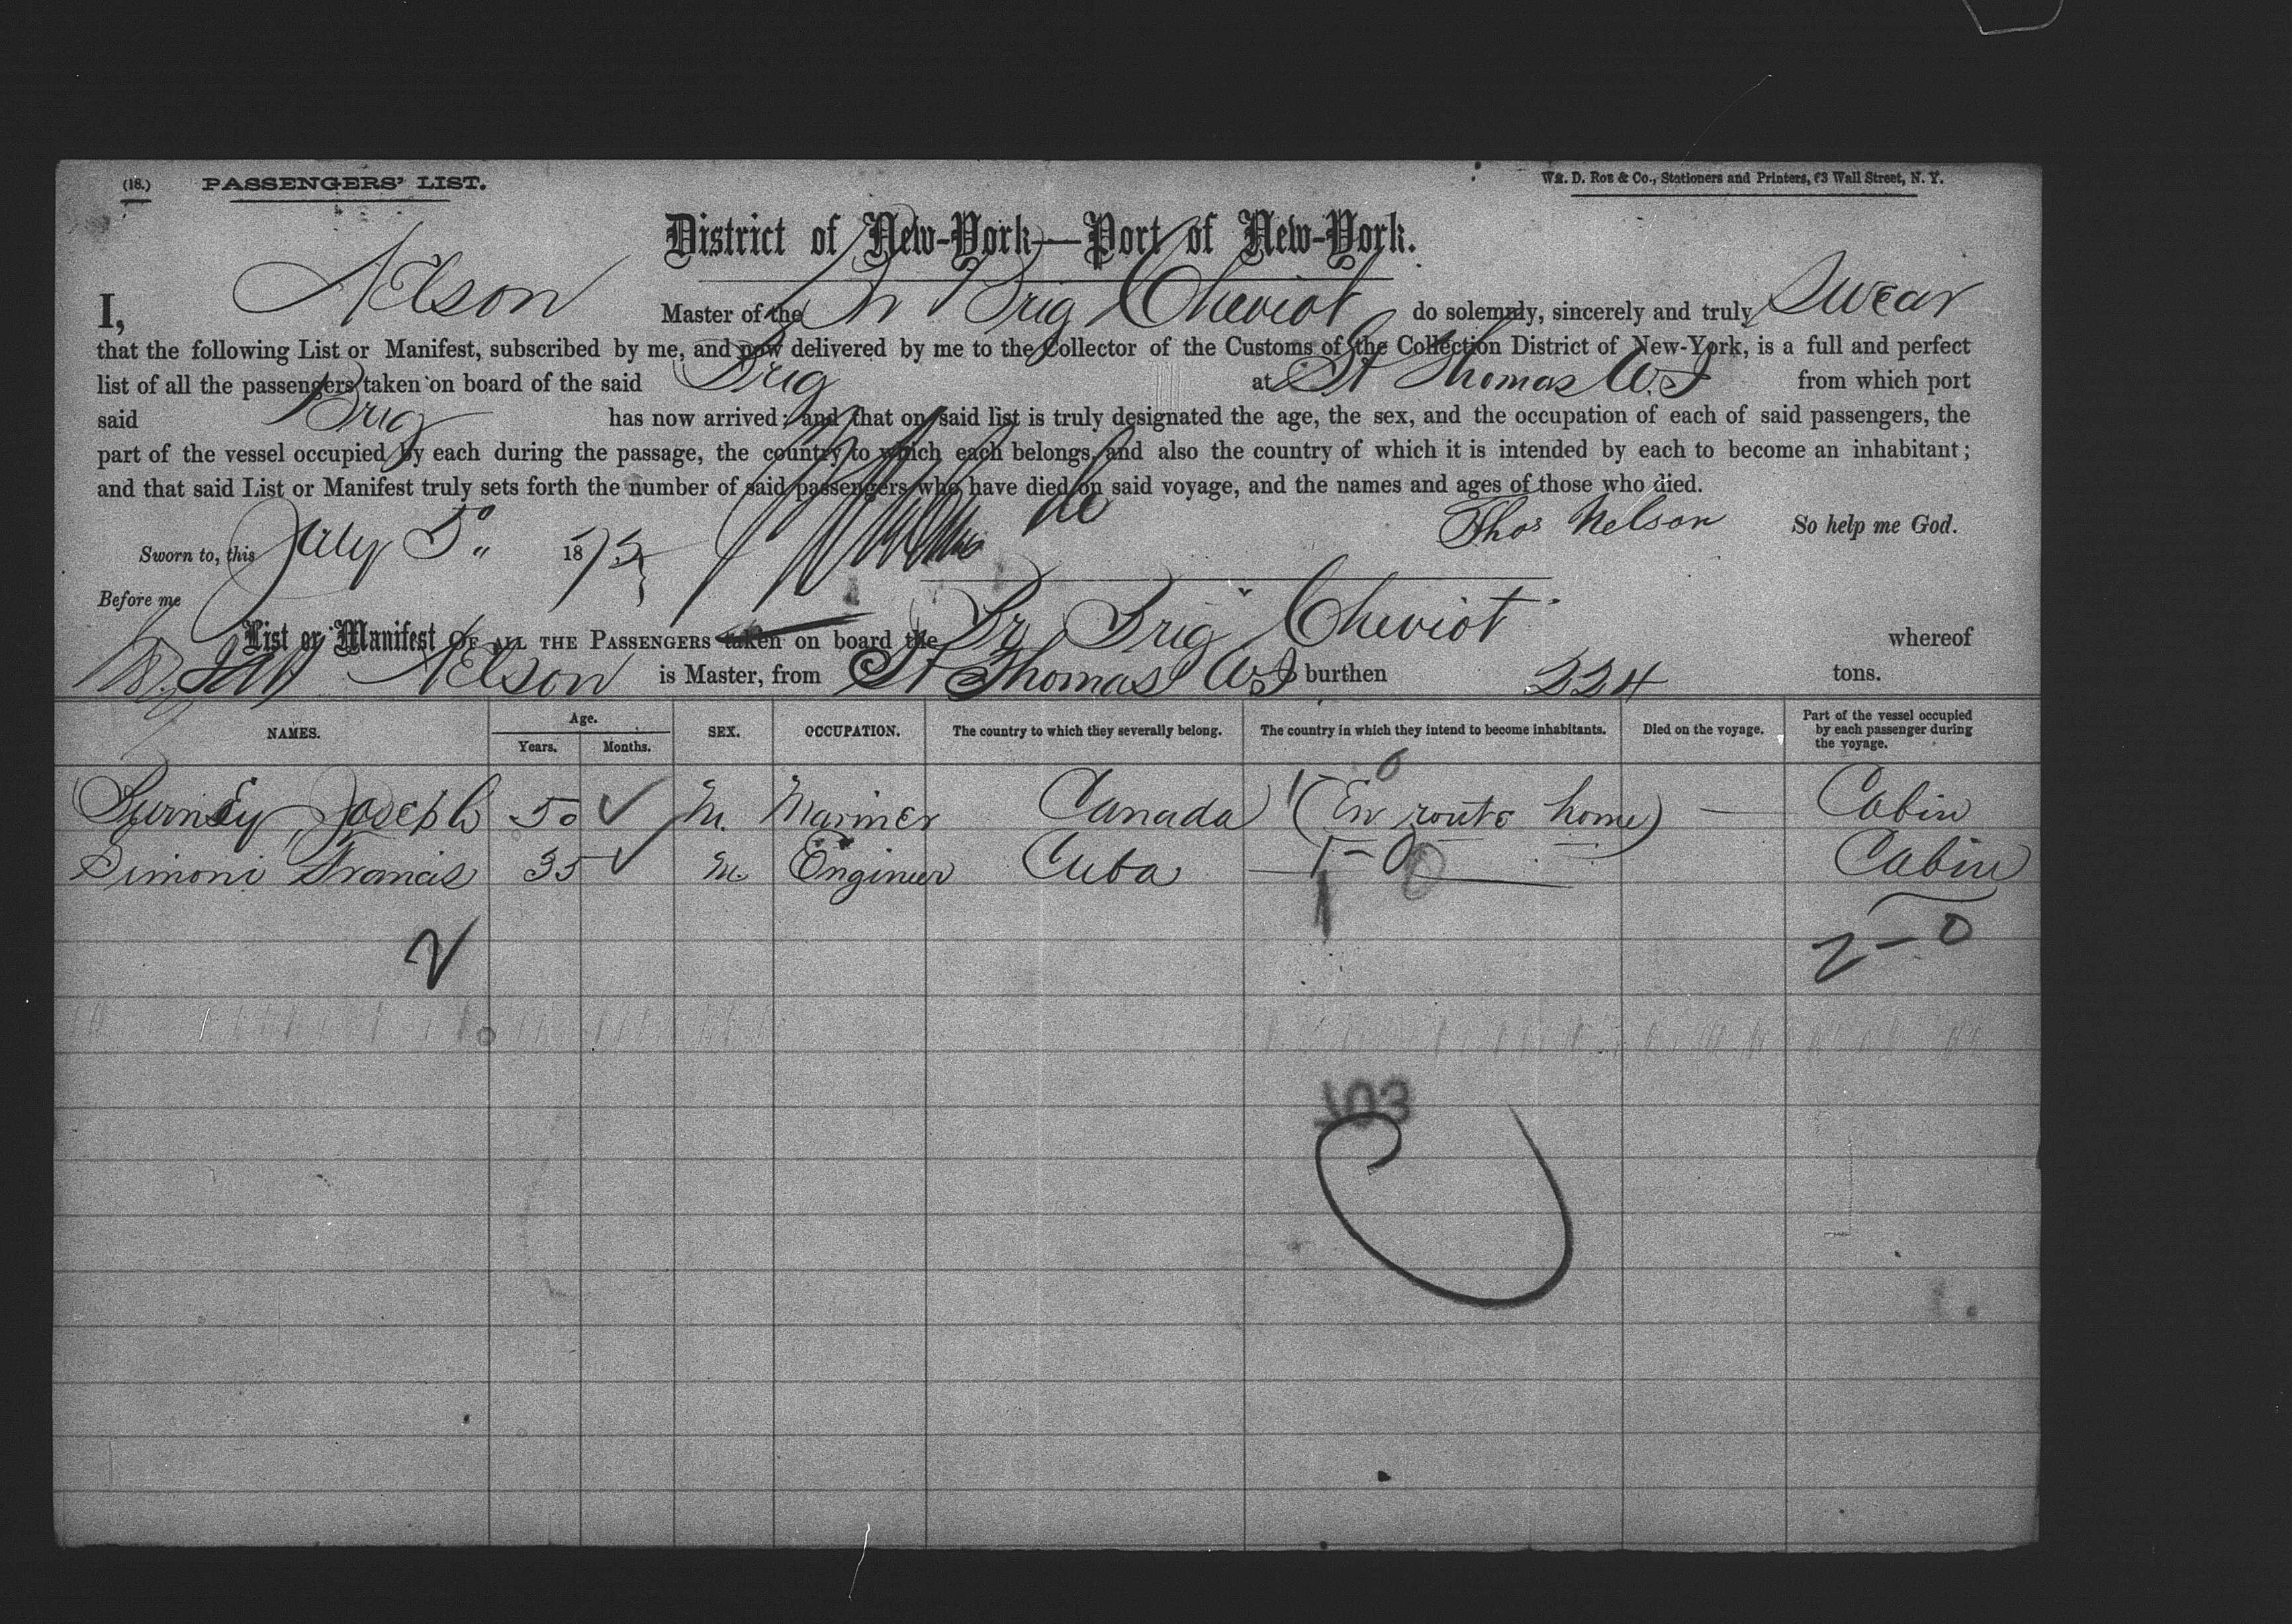 (18.) PASSENGERS' LIST. WM. D. ROE & CO., Stationers and Printers, 63 Wall Street, N. Y.
District of New-York—Port of New-York.
I, Nelson Master of the Br Brig Cheviot do solemnly, sincerely and truly Swear
that the following List or Manifest, subscribed by me, and now delivered by me to the Collector of the Customs of the Collection District of New-York, is a full and perfect
list of all the passengers taken on board of the said Brig at St Thomas W.I from which port
said Brig has now arrived; and that on said list is truly designated the age, the sex, and the occupation of each of said passengers, the
part of the vessel occupied by each during the passage, the country to which each belongs, and also the country of which it is intended by each to become an inhabitant;
and that said List or Manifest truly sets forth the number of said passengers who have died on said voyage, and the names and ages of those who died.
Thos Nelson So help me God.
Sworn to, this July 5" 187
Before me
List or Manifest OF ALL THE PASSENGERS taken on board the Br Brig Cheviot whereof
Nelson is Master, from St Thomas W.I burthen 224 tons.
NAMES. Age. Years. Months. SEX. OCCUPATION. The country to which they severally belong. The country in which they intend to become inhabitants. Died on the voyage. Part of the vessel occupied by each passenger during the voyage.
1-0
Joseph 50 M. Mariner Canada (En route home) — Cabin
Simoni Francis 35 M. Engineer Cuba 1-0 Cabin
1 0
2 2-0
103